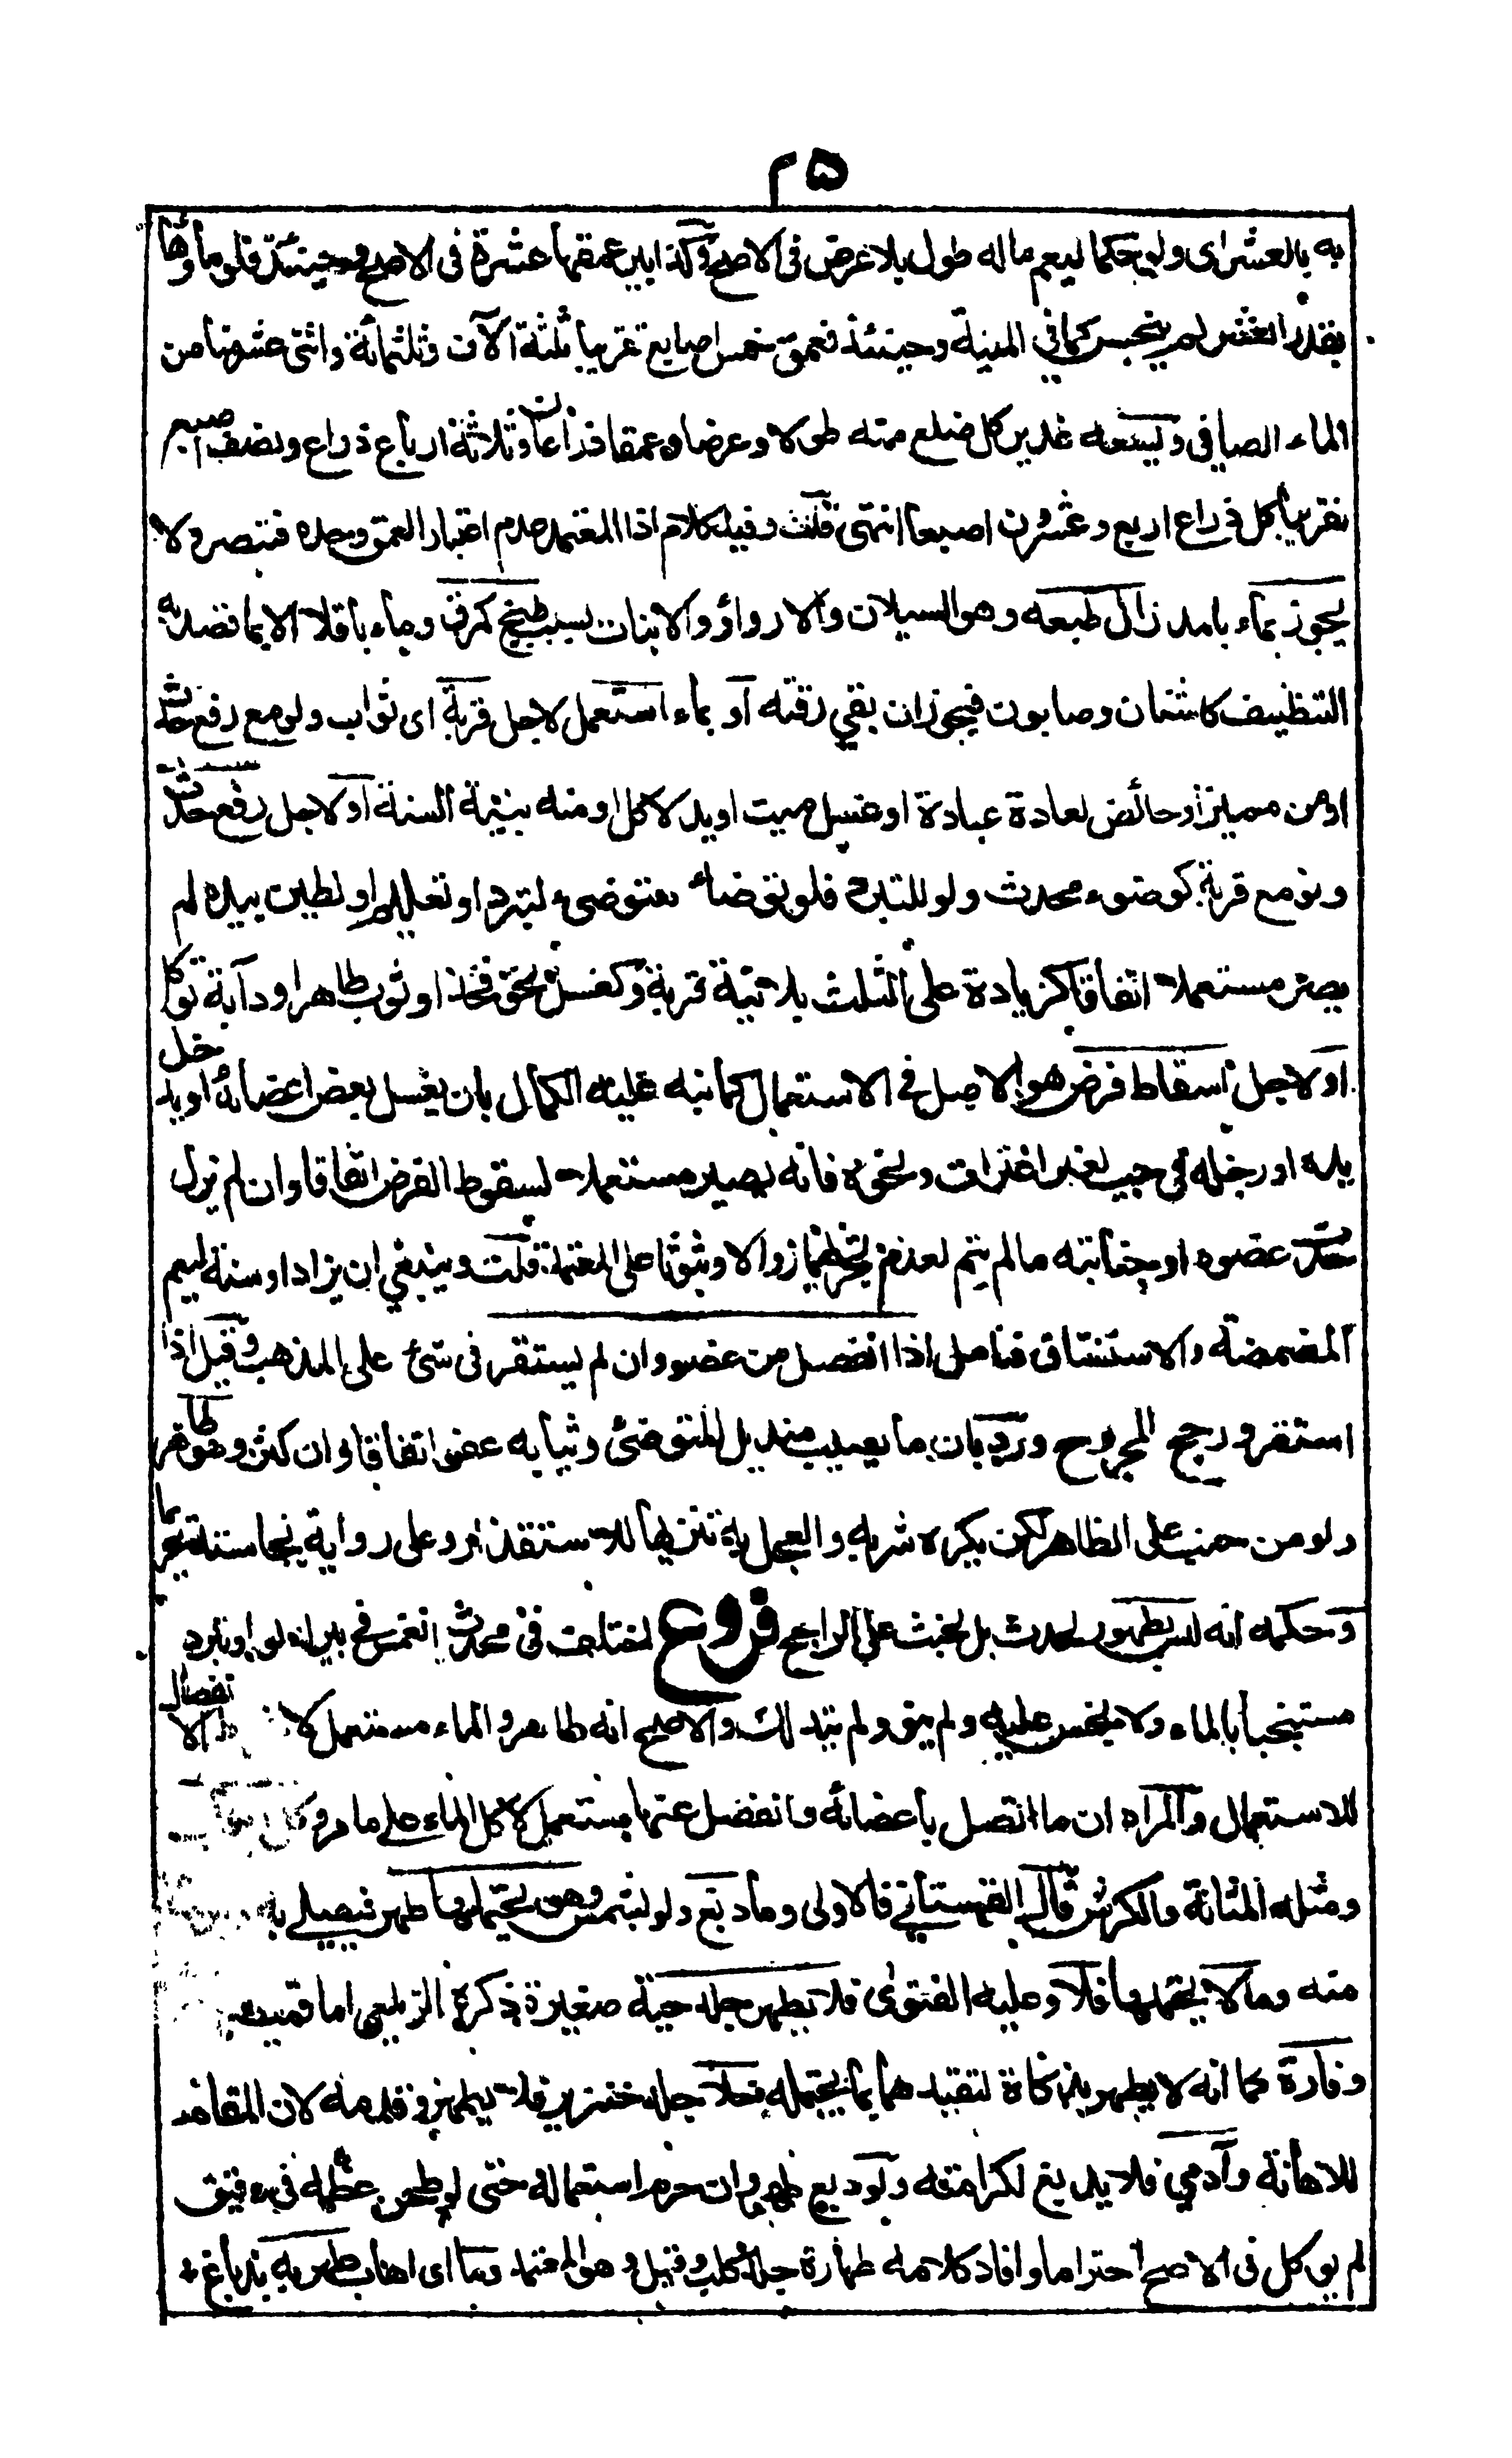 ٢٥
به بالعشر اى ولو حكما ليعم ماله طول بلا عرض فى الاصح وكذا بير عمقها عشرة فى الاصح وحينئذ فلو ماؤها
بقدر العشر لم ينجس كما فى المنية وحينئذ فعمق خمس اصابع تقريبا ثلثة آلاف وثلثمائة واثنى عشر منا من
الماء الصافى ويسعه غدير كل ضلع منه طولا وعرضا وعمقا ذراعان وثلاثة ارباع ذراع ونصف اصبع
تقريبا كل ذراع اربع وعشرون اصبعا انتهى قلت وفيه كلام اذا المعتمد عدم اعتبار العمق وحده فتبصر ولا
يجوز بماء بالمد زال طبعه وهو السيلان والارواؤ والانبات بسبب طبخ كمرق وماء باقلا الا بما قصد به
التنظيف كاشنان وصابون فيجوز ان بقي رقته او بماء استعمل لاجل قربة اى ثواب ولو مع رفع حدث
او من مميز او حائض لعادة عبادة او غسل ميت او يد لاكل او منه بنية السنة او لاجل رفع حدث
ولو مع قربة كوضوء محدث ولو للتبرد فلو توضاء متوضئ لتبرد او تعليم او لطين بيده لم
يصر مستعملا اتفاقا كزيادة على الثلث بلا نية قربة وكغسل نحو فخذ او ثوب طاهر او دابة توكل
او لاجل اسقاط فرض هو الاصل فى الاستعمال كما نبه عليه الكمال بان يغسل بعض اعضائه او يدخل
يده او رجله فى جب لغير اغتراف ونحوه فانه يصير مستعملا لسقوط الفرض اتفاقا وان لم يزل
حدث عضوه او جنابته ما لم يتم لعدم تجزيهما زوالا وثبوتا على المعتمد قلت وينبغي ان يزاد او سنة ليعم
المضمضة والاستنشاق فتامل اذا انفصل من عضو وان لم يستقر فى شئ على المذهب وقيل اذا
استقر ورجح للحرج ورد بان ما يصيب منديل المتوضئ وثيابه عفو اتفاقا وان كثر وهو طاهر
ولو من جنب على الظاهر لكن يكره شربه والعجن به تنزيها للاستقذار وعلى رواية نجاسته تحريما
وحكمه انه ليس بطهور لحدث بل لخبث على الراجح فروع اختلف فى محدث انغمس فى بير لدلو او تبرد
مستنجيا بالماء ولا نجس عليه ولم ينو ولم يتدلك والاصح انه طاهر والماء مستعمل لاشتراط الانفصال
للاستعمال والمراد ان ما اتصل باعضائه وانفصل عنها مستعمل لا كل الماء على ما مر وكل اهاب
ومثله المثانة والكرش قال القهستاني فالاولى وما دبغ ولو بشمس وهو يحتملها طهر فيصلى به
منه وما لا يحتملها فلا وعليه الفتوى فلا يطهر جلد حية صغيرة ذكره الزيلعى اما قميصها
وفارة كما انه لا يطهر بذكاة لتقيدهما بما يحتمله خلا جلد خنزير فلا يطهر وقدمه لان المقام
للاهانة وآدمي فلا يدبغ لكرامته ولو دبغ طهر وان حرم استعماله حتى لو طحن عظمه فى دقيق
لم يوكل فى الاصح احتراما وافاد كلامه طهارة جلد كلب وفيل وهو المعتمد وما اى اهاب طهر به بدباغ